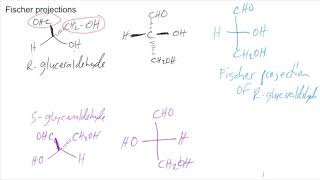 Fischer projections
OHC CH2-OH
H OH
R-glyceraldehyde
CHO
H C OH
CH2OH
CHO
H OH
CH2OH
Fischer projection
of R-glyceraldehyde
S-glyceraldehyde
OHC CH2OH
HO H
CHO
HO H
CH2OH